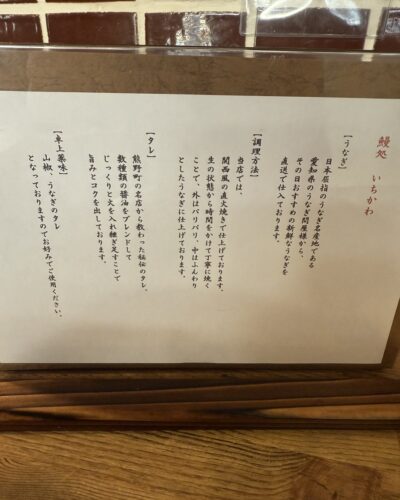 鰻処 いちかわ
【うなぎ】
日本屈指のうなぎ名産地である
愛知県のうなぎ問屋様から、
その日おすすめの新鮮なうなぎを
直送で仕入ております。
【調理方法】
当店では、
関西風の直火焼きで仕上げております。
生の状態から時間をかけて丁寧に焼く
ことで、外はパリパリ、中はふんわり
としたうなぎに仕上げております。
【タレ】
熊野町の名店から教わった秘伝のタレ。
数種類の醤油をブレンドして
じっくりと火を入れ継ぎ足すことで
旨みとコクを出しております。
【卓上薬味】
山椒、うなぎのタレ
となっておりますのでお好みでご使用ください。